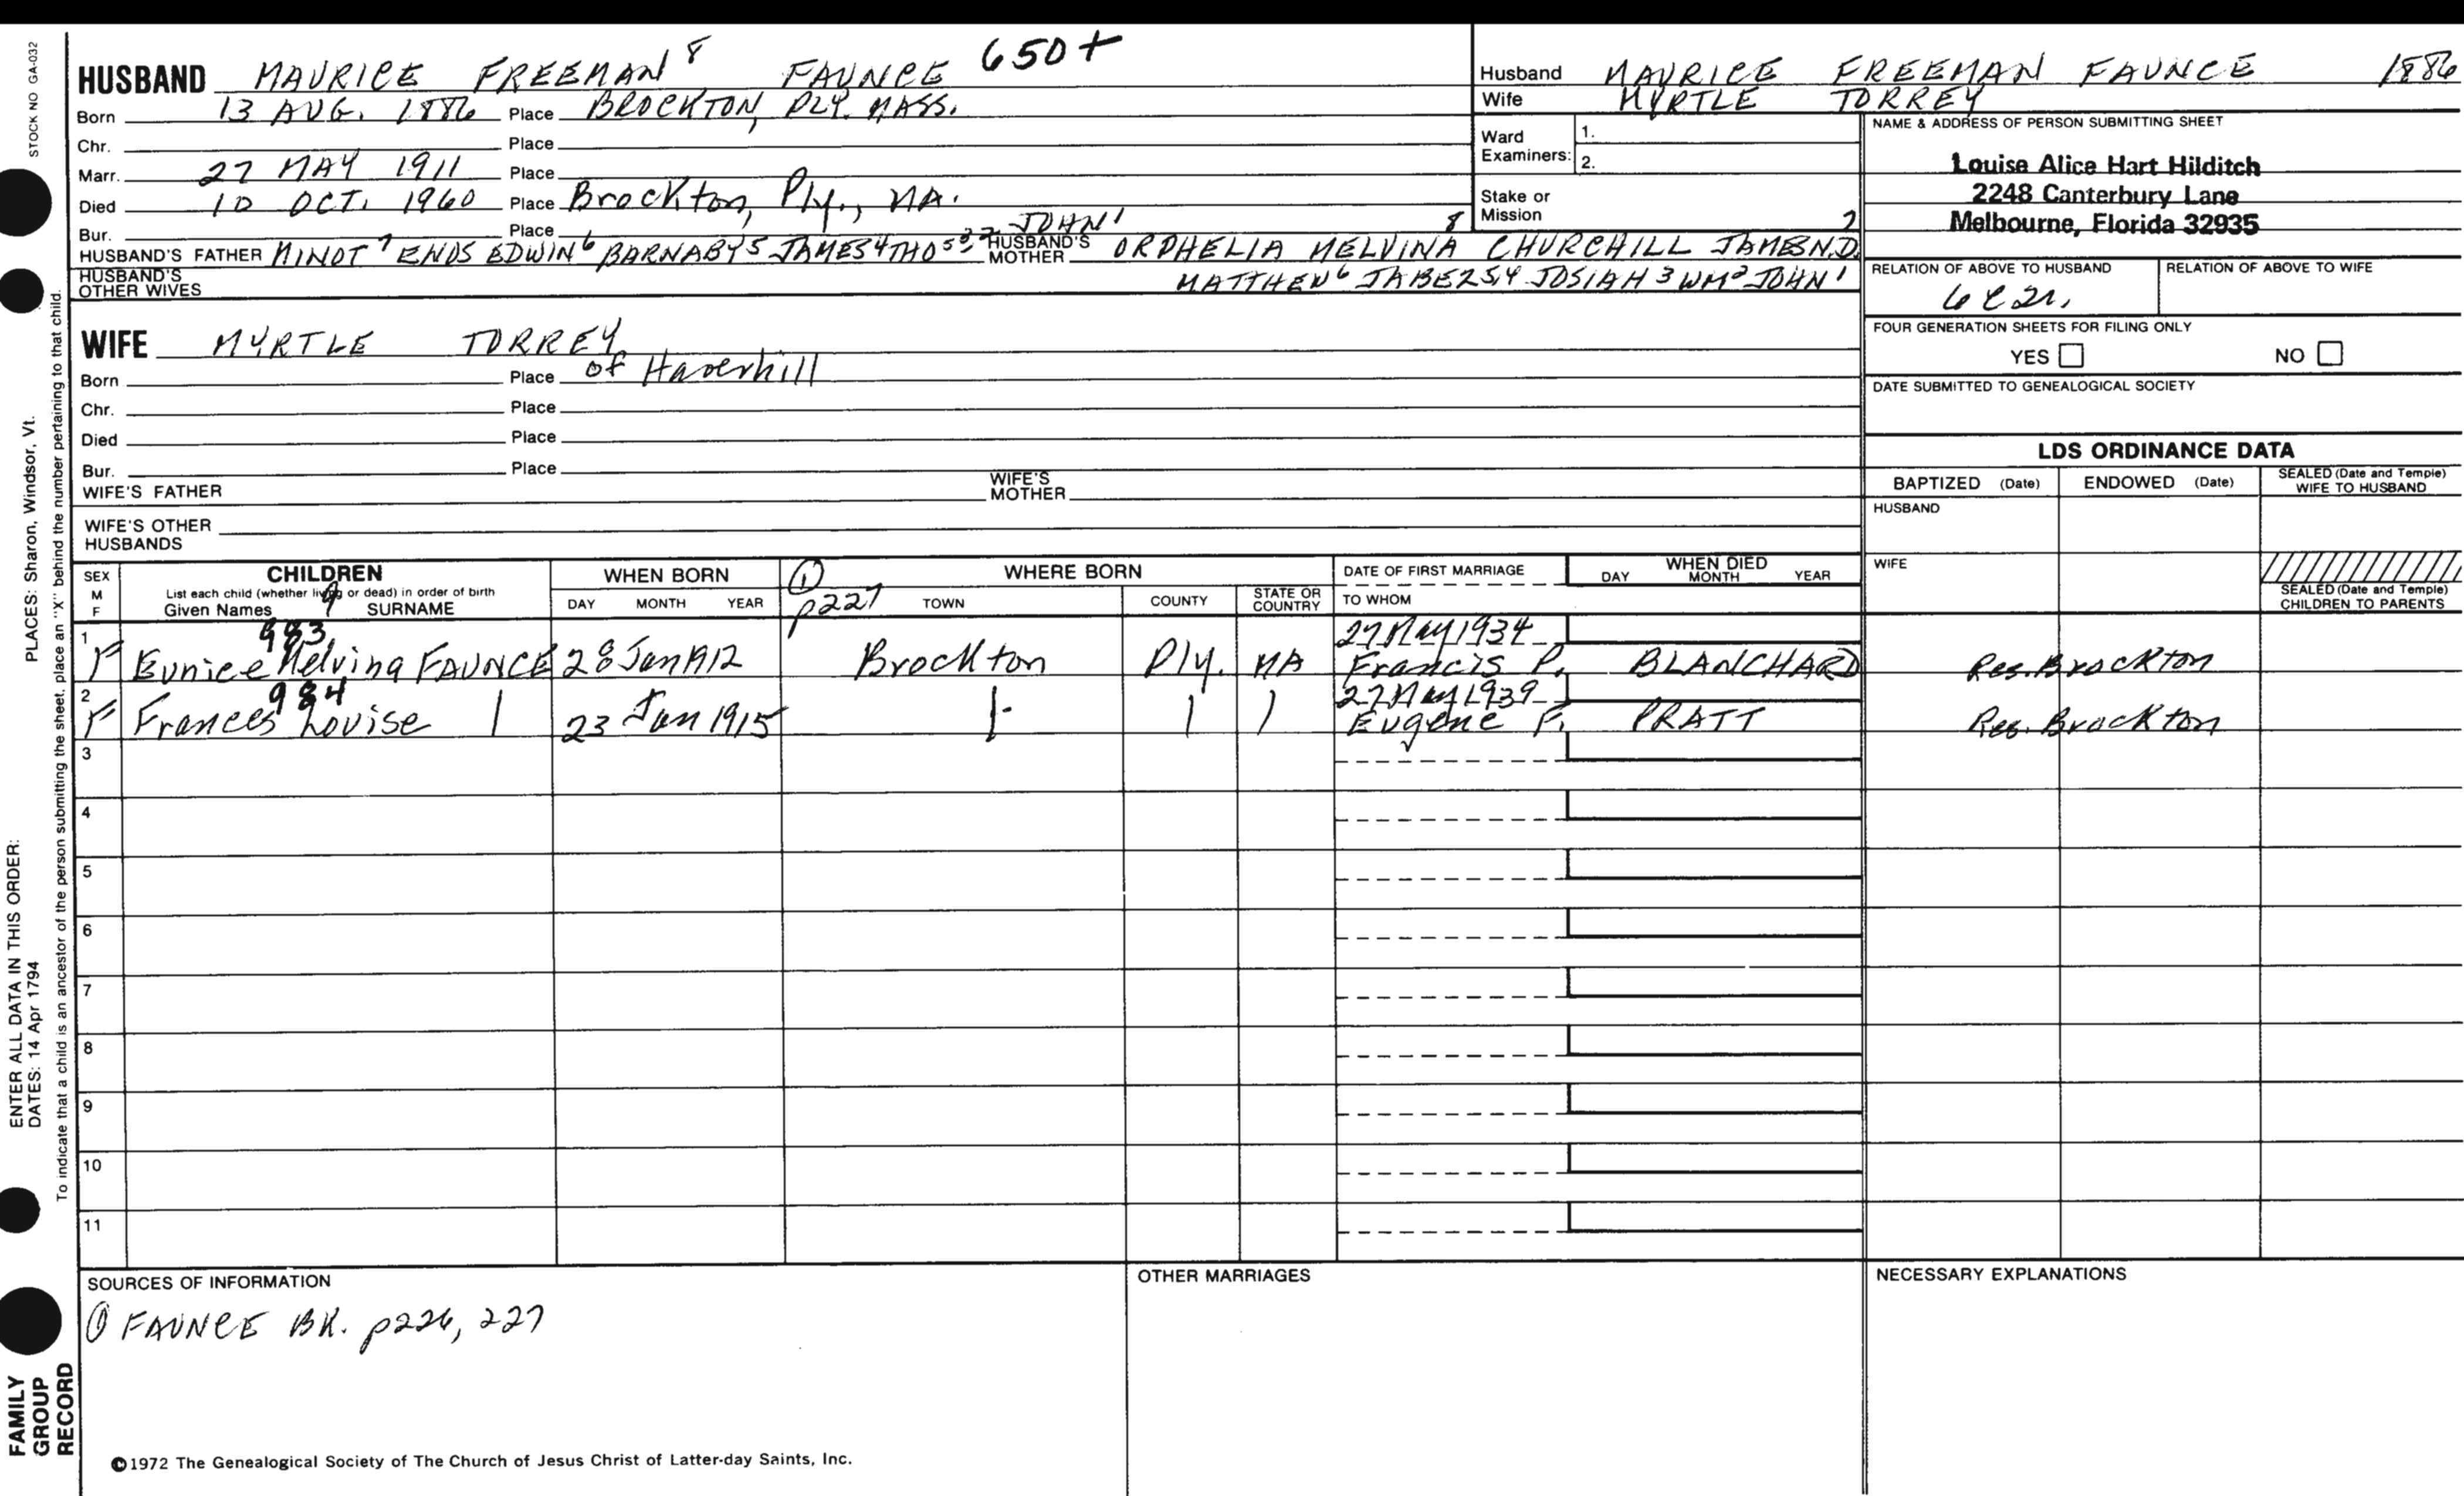 STOCK NO GA-032
HUSBAND MAURICE FREEMAN 8 FAUNCE 650+
Born 13 AUG. 1886 Place BROCKTON, PLY. MASS.
Chr. Place
Marr. 27 MAY 1911 Place
Died 10 OCT. 1960 Place Brockton, Ply., MA.
Bur. Place
HUSBAND'S FATHER MINOT 7 ENOS EDWIN 6 BARNABY 5 JAMES 4 THOS 3 2 JOHN 1 HUSBAND'S MOTHER ORPHELIA MELVINA 8 CHURCHILL JAMES N.D. 7
HUSBAND'S OTHER WIVES MATTHEW 6 JABEZ 5,4 JOSIAH 3 WM 2 JOHN 1
Husband MAURICE FREEMAN FAUNCE 1886
Wife MYRTLE TORREY
Ward Examiners: 1.
2.
Stake or Mission
NAME & ADDRESS OF PERSON SUBMITTING SHEET
Louise Alice Hart Hilditch
2248 Canterbury Lane
Melbourne, Florida 32935
RELATION OF ABOVE TO HUSBAND RELATION OF ABOVE TO WIFE
6C2r.
FOUR GENERATION SHEETS FOR FILING ONLY
YES NO
DATE SUBMITTED TO GENEALOGICAL SOCIETY
WIFE MYRTLE TORREY
Born Place of Haverhill
Chr. Place
Died Place
Bur. Place
WIFE'S FATHER WIFE'S MOTHER
WIFE'S OTHER HUSBANDS
LDS ORDINANCE DATA
BAPTIZED (Date) ENDOWED (Date) SEALED (Date and Temple) WIFE TO HUSBAND
HUSBAND
WIFE
SEALED (Date and Temple) CHILDREN TO PARENTS
SEX M F
CHILDREN
List each child (whether living or dead) in order of birth
Given Names 9 SURNAME
WHEN BORN
DAY MONTH YEAR
1 p227
WHERE BORN
TOWN COUNTY STATE OR COUNTRY
DATE OF FIRST MARRIAGE
TO WHOM
WHEN DIED
DAY MONTH YEAR
983 27 May 1934
1 F Eunice Melvina FAUNCE 28 Jan 1912 Brockton Ply. MA Francis P. BLANCHARD Res. Brockton
984 27 May 1939
2 F Frances Louise 23 Jan 1915 Eugene F. PRATT Res. Brockton
3
4
5
6
7
8
9
10
11
SOURCES OF INFORMATION
1 FAUNCE BK. p226, 227
OTHER MARRIAGES
NECESSARY EXPLANATIONS
©1972 The Genealogical Society of The Church of Jesus Christ of Latter-day Saints, Inc.
PLACES: Sharon, Windsor, Vt.
To indicate that a child is an ancestor of the person submitting the sheet, place an "X" behind the number pertaining to that child.
ENTER ALL DATA IN THIS ORDER:
DATES: 14 Apr 1794
FAMILY GROUP RECORD